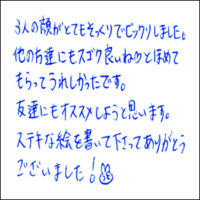 3人の顔がとてもそっくりでビックリしました。
他の友達にもスゴク良いねとほめて
もらってうれしかったです。
友達にもオススメしようと思います。
ステキな絵を書いて下さってありがとう
ございました!